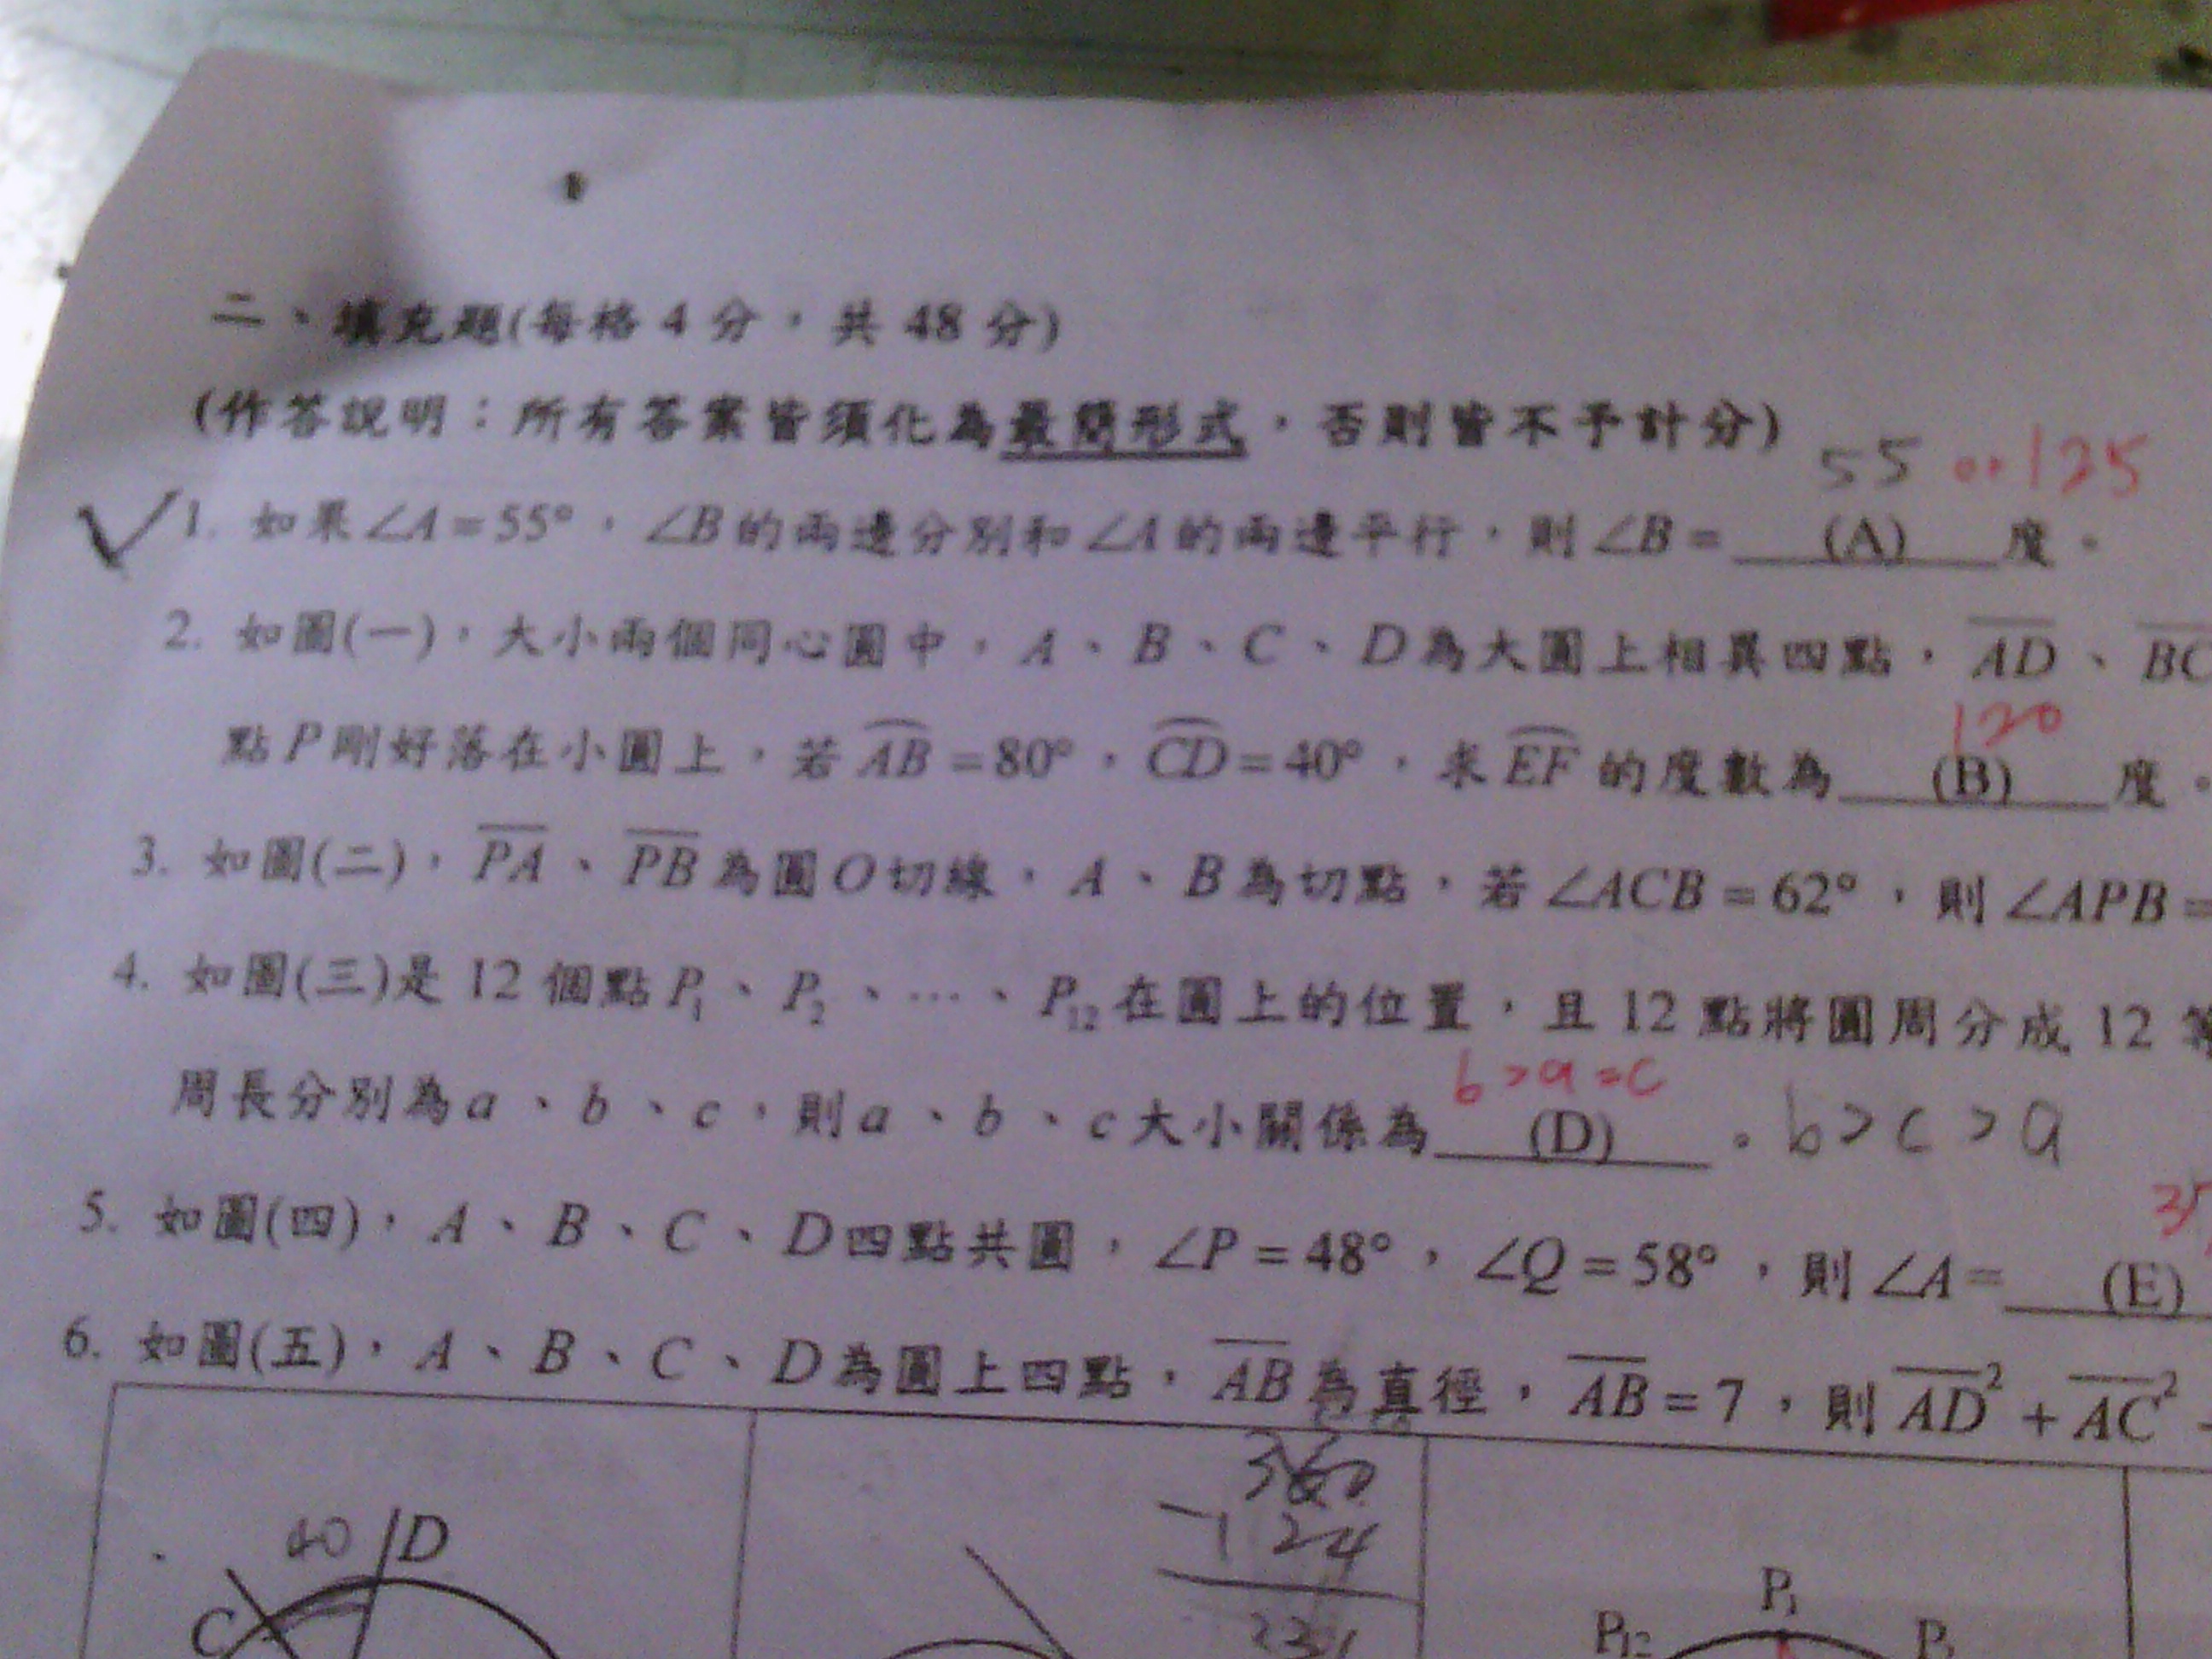 二、填充題(每格 4 分，共 48 分)
(作答說明：所有答案皆須化為最簡形式，否則皆不予計分)
55 or 125
1. 如果∠A=55°，∠B的兩邊分別和∠A的兩邊平行，則∠B= (A) 度。
2. 如圖(一)，大小兩個同心圓中，A、B、C、D為大圓上相異四點，AD、BC
120
點P剛好落在小圓上，若AB=80°，CD=40°，求EF的度數為 (B) 度。
3. 如圖(二)，PA、PB為圓O切線，A、B為切點，若∠ACB=62°，則∠APB=
4. 如圖(三)是 12 個點P₁、P₂、…、P₁₂在圓上的位置，且 12 點將圓周分成 12 等
b>a=c
周長分別為a、b、c，則a、b、c大小關係為 (D) 。b>c>a
5. 如圖(四)，A、B、C、D四點共圓，∠P=48°，∠Q=58°，則∠A= (E)
6. 如圖(五)，A、B、C、D為圓上四點，AB為直徑，AB=7，則AD²+AC²
360
-124
40 D
C
P₁
P₁₂